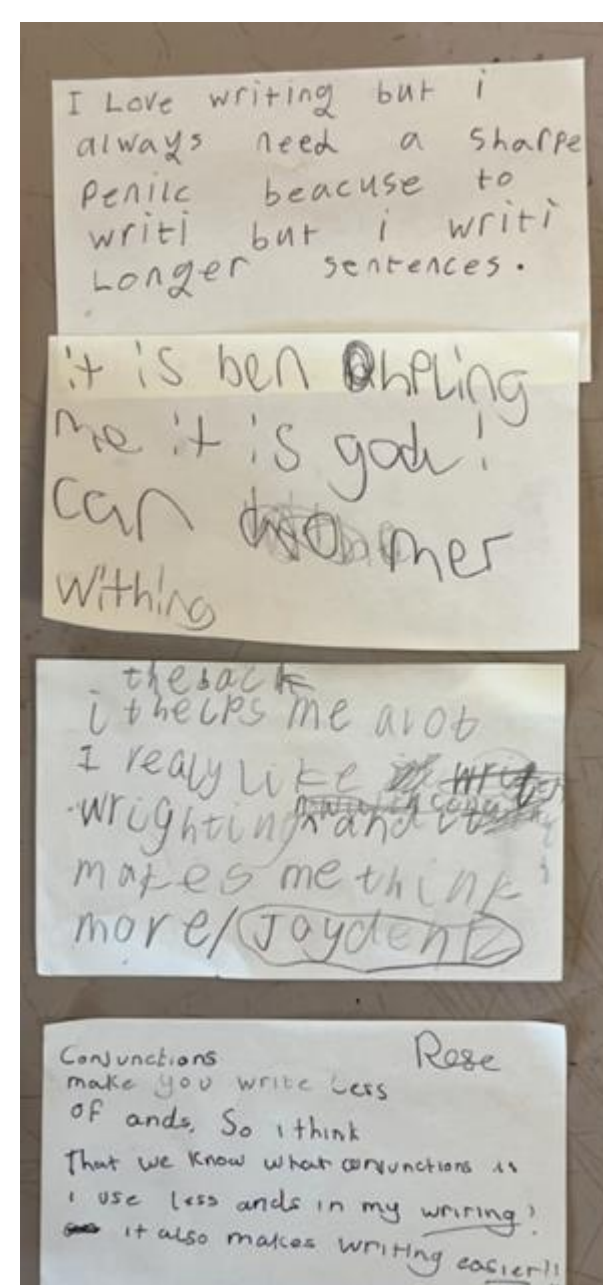 I Love writing but i
always need a sharpe
Penilc beacuse to
writi but i writi
Longer sentences.
it is ben hpling
me it is god!
can mer
withing
the back
it helps me alot
I realy like
wrighting and it
makes me think
more/Jayden
Rose
Conjunctions
make you write Less
of ands, So i think
That we know what conjunctions is
i use less ands in my wriring!
it also makes writing easier!!